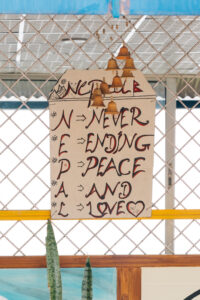 *N ⇒ NEVER
*E ⇒ ENDING
*P ⇒ PEACE
*A ⇒ AND
*L ⇒ LOVE♡